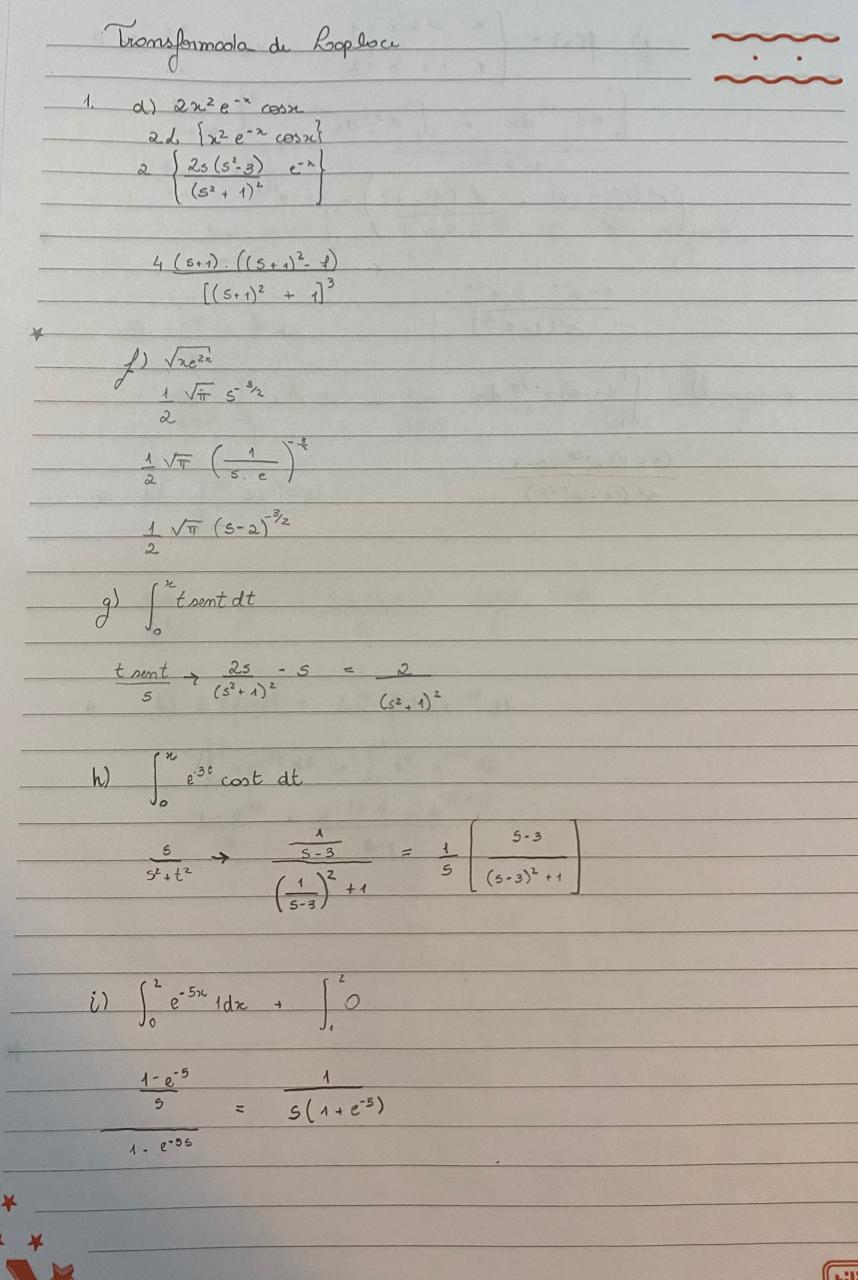 Transformada de Laplace
1. d) 2x² e⁻ˣ cosx
2L {x² e⁻ˣ cosx}
2 { 2s(s²-3) / (s² + 1)² e⁻ˣ }
4 (s+1) . ((s+1)² - 1) / [(s+1)² + 1]³
f) √xe²ˣ
1/2 √π s^-3/2
1/2 √π (1 / s. e)
1/2 √π (s-2)^-3/2
g) ∫₀ˣ t sent dt
t sent / s → 2s / (s² + 1)² - s = 2 / (s² + 1)²
h) ∫₀ˣ e³ᵗ cost dt
s / s² + t² → (1 / s-3) / ((1 / s-3)² + 1) = 1/s [ s-3 / (s-3)² + 1 ]
i) ∫₀² e⁻⁵ˣ 1dx + ∫₁² 0
((1-e⁻⁵) / s) / (1 - e⁻⁵ˢ) = 1 / s(1 + e⁻⁵)